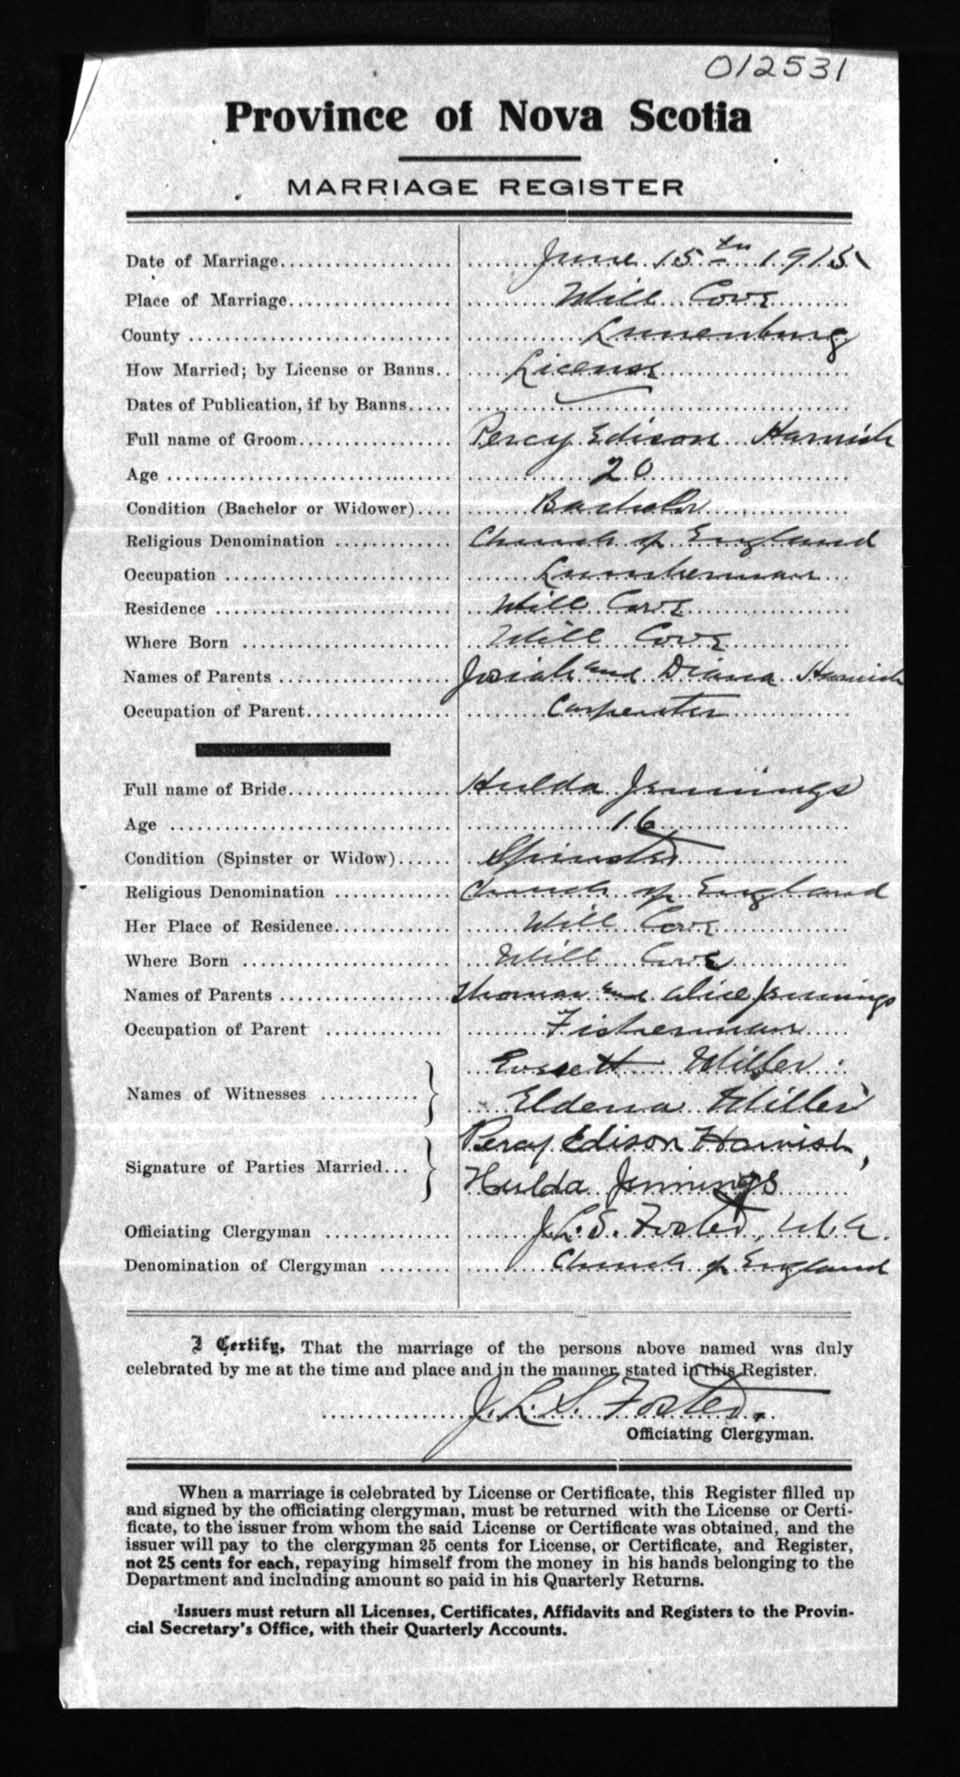 012531
Province of Nova Scotia
MARRIAGE REGISTER
Date of Marriage.................... June 15th 1915
Place of Marriage................... Mill Cove
County .............................. Lunenburg
How Married; by License or Banns.. License
Dates of Publication, if by Banns.....
Full name of Groom.................. Percy Edison Harnish
Age .................................. 20
Condition (Bachelor or Widower).... Bachelor
Religious Denomination ............. Church of England
Occupation .......................... Lumberman
Residence ........................... Mill Cove
Where Born ......................... Mill Cove
Names of Parents ................... Josiah and Diana Harnish
Occupation of Parent................. Carpenter
Full name of Bride................... Hulda Jennings
Age .................................. 16
Condition (Spinster or Widow)...... Spinster
Religious Denomination ............. Church of England
Her Place of Residence.............. Mill Cove
Where Born ......................... Mill Cove
Names of Parents ................... Thomas and Alice Jennings
Occupation of Parent ............... Fisherman
Miller
Names of Witnesses ...........
Eldena Miller
Percy Edison Harnish,
Signature of Parties Married...
Hulda Jennings
Officiating Clergyman ............... J. L. S. Foster, M.A.
Denomination of Clergyman ........ Church of England
I Certify, That the marriage of the persons above named was duly
celebrated by me at the time and place and in the manner stated in this Register.
J. L. S. Foster.
Officiating Clergyman.
When a marriage is celebrated by License or Certificate, this Register filled up
and signed by the officiating clergyman, must be returned with the License or Certi-
ficate, to the issuer from whom the said License or Certificate was obtained, and the
issuer will pay to the clergyman 25 cents for License, or Certificate, and Register,
not 25 cents for each, repaying himself from the money in his hands belonging to the
Department and including amount so paid in his Quarterly Returns.
Issuers must return all Licenses, Certificates, Affidavits and Registers to the Provin-
cial Secretary's Office, with their Quarterly Accounts.